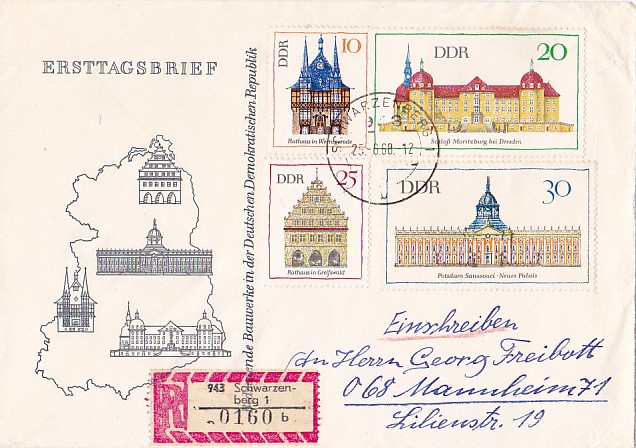 ERSTTAGSBRIEF
Bedeutende Bauwerke in der Deutschen Demokratischen Republik
DDR 10
Rathaus in Wernigerode
DDR 20
Schloß Moritzburg bei Dresden
SCHWARZENBERG
25.-6.68.-12
DDR 25
Rathaus in Greifswald
DDR 30
Potsdam Sanssouci · Neues Palais
Einschreiben
An Herrn Georg Freibott
068 Mannheim 71
Lilienstr. 19
R
943 Schwarzen-
berg 1
0160 b